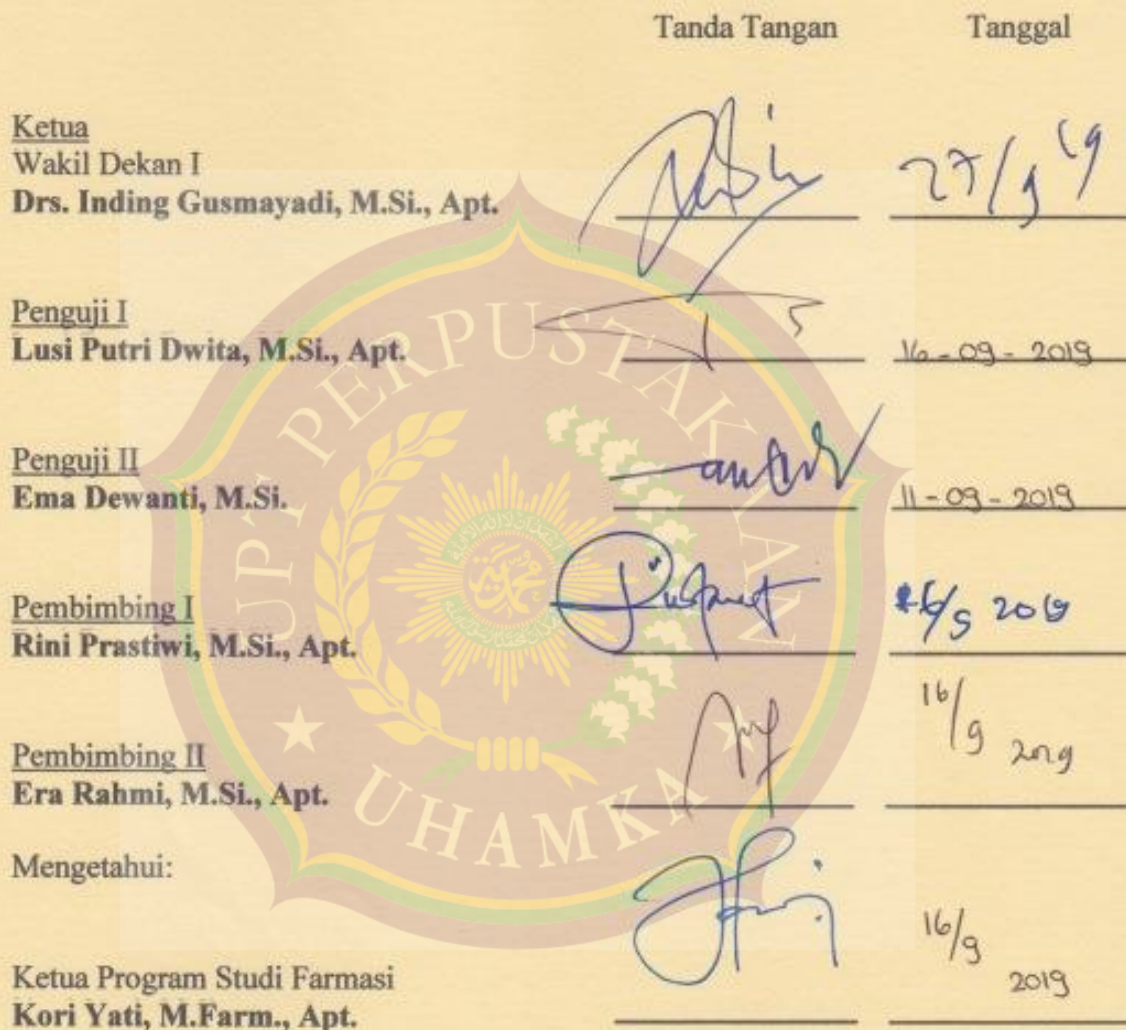 Tanda Tangan Tanggal
Ketua
Wakil Dekan I
Drs. Inding Gusmayadi, M.Si., Apt. 27/9 '19
Penguji I
Lusi Putri Dwita, M.Si., Apt. 16-09-2019
Penguji II
Ema Dewanti, M.Si. 11-09-2019
Pembimbing I
Rini Prastiwi, M.Si., Apt.
Pembimbing II 16/9 2019
Era Rahmi, M.Si., Apt.
Mengetahui:
Ketua Program Studi Farmasi 16/9 2019
Kori Yati, M.Farm., Apt.
UPT PERPUSTAKAAN
UHAMKA